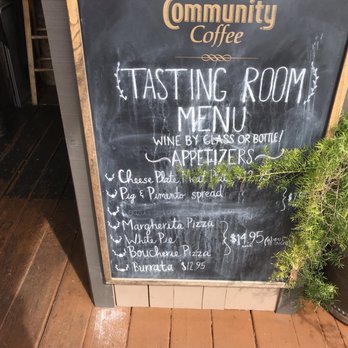 Community
Coffee
TASTING ROOM
MENU
WINE BY GLASS OR BOTTLE!
APPETIZERS
Cheese Plate, Meat
Pig & Pimento spread
Margherita Pizza
White Pie
$14.95
Boucherie Pizza
Burrata $12.95